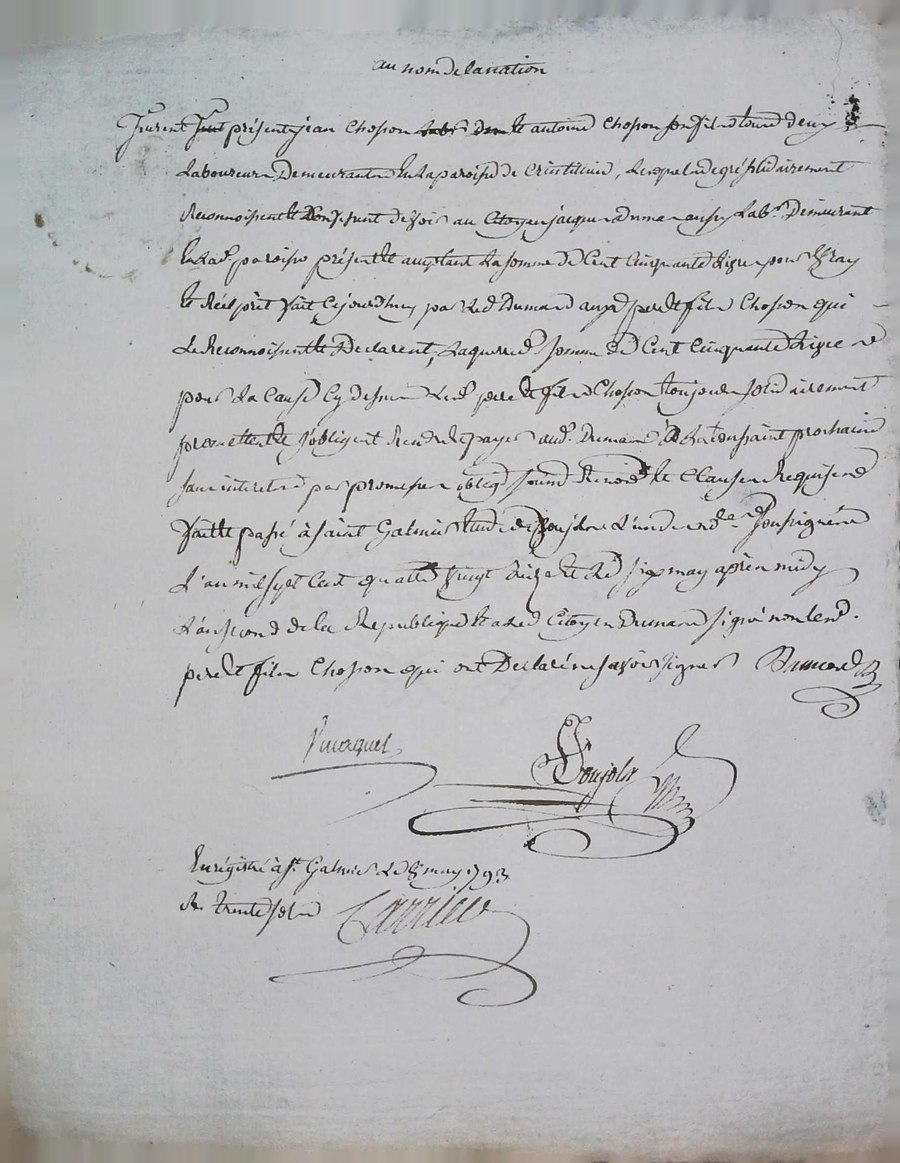 au nom de la nation
Furent fut présent jean Chosson labr dem et antoine Chosson son fils tous deux
Laboureurs Demeurants En la paroisse de Lesquels de gré solidairement
Reconnoissent et Confessent devoir au Citoyen jacques Dumas aussy Labr. Demeurant
En lad. paroisse présent et aceptant La somme de Cent Cinquante Livres pour vray
et Réel prêt fait Cejourdhuy par Led Dumas auxd pere et fils Chosson qui
Le Reconnoissent et Declarent, Laquelle d. somme de Cent Cinquante Livres
pour La Cause Cy dessus Lesd. pere et fils Chosson toujours solidairement
promettent et s'obligent Rendre et payer aud. Dumas à La toussaint prochaine
sans interets par promesses oblig soumd Renond et Clauses Requises
fait et passé à saint Galmier Etude de L'un des nd.res soussignés
L'an mil sept Cent quatre Vingt treize et Le six may après midy
L'an second de la Republique et a Led Citoyen Dumas signé non Lesd.
pere et fils Chosson qui ont Declaré ne savoir signer Dumas

Enrégistré à st. Galmier Le 8 may 1793
Rs trente sols